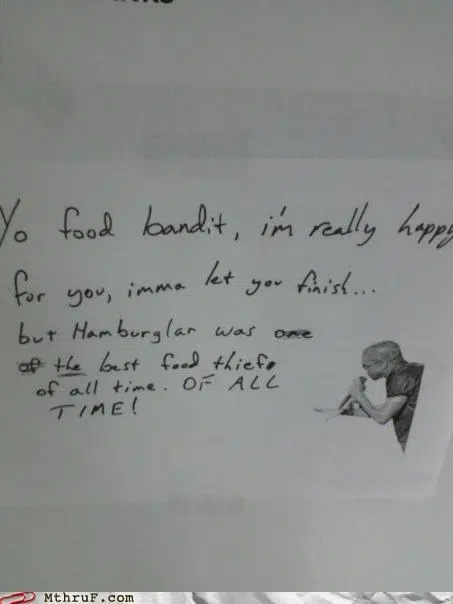 Yo food bandit, i'm really happy
for you, imma let you finish...
but Hamburglar was one
of the best food thief
of all time. OF ALL
TIME!
MThruF.com